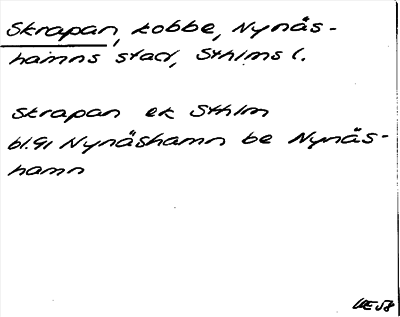 Skrapan, kobbe, Nynäs-
hamns stad, Sthlms l.
Skrapan ek Sthlm
bl.91 Nynäshamn be Nynäs-
hamn